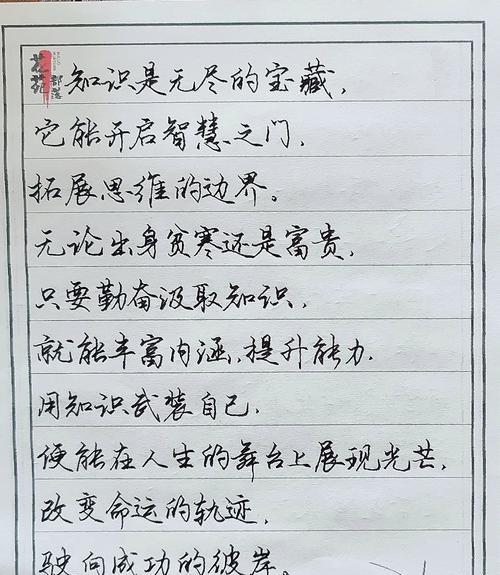 花苑
部落
知识是无尽的宝藏，
它能开启智慧之门，
拓展思维的边界。
无论出身贫寒还是富贵，
只要勤奋汲取知识，
就能丰富内涵，提升能力.
用知识武装自己，
便能在人生的舞台上展现光芒，
改变命运的轨迹，
驶向成功的彼岸。